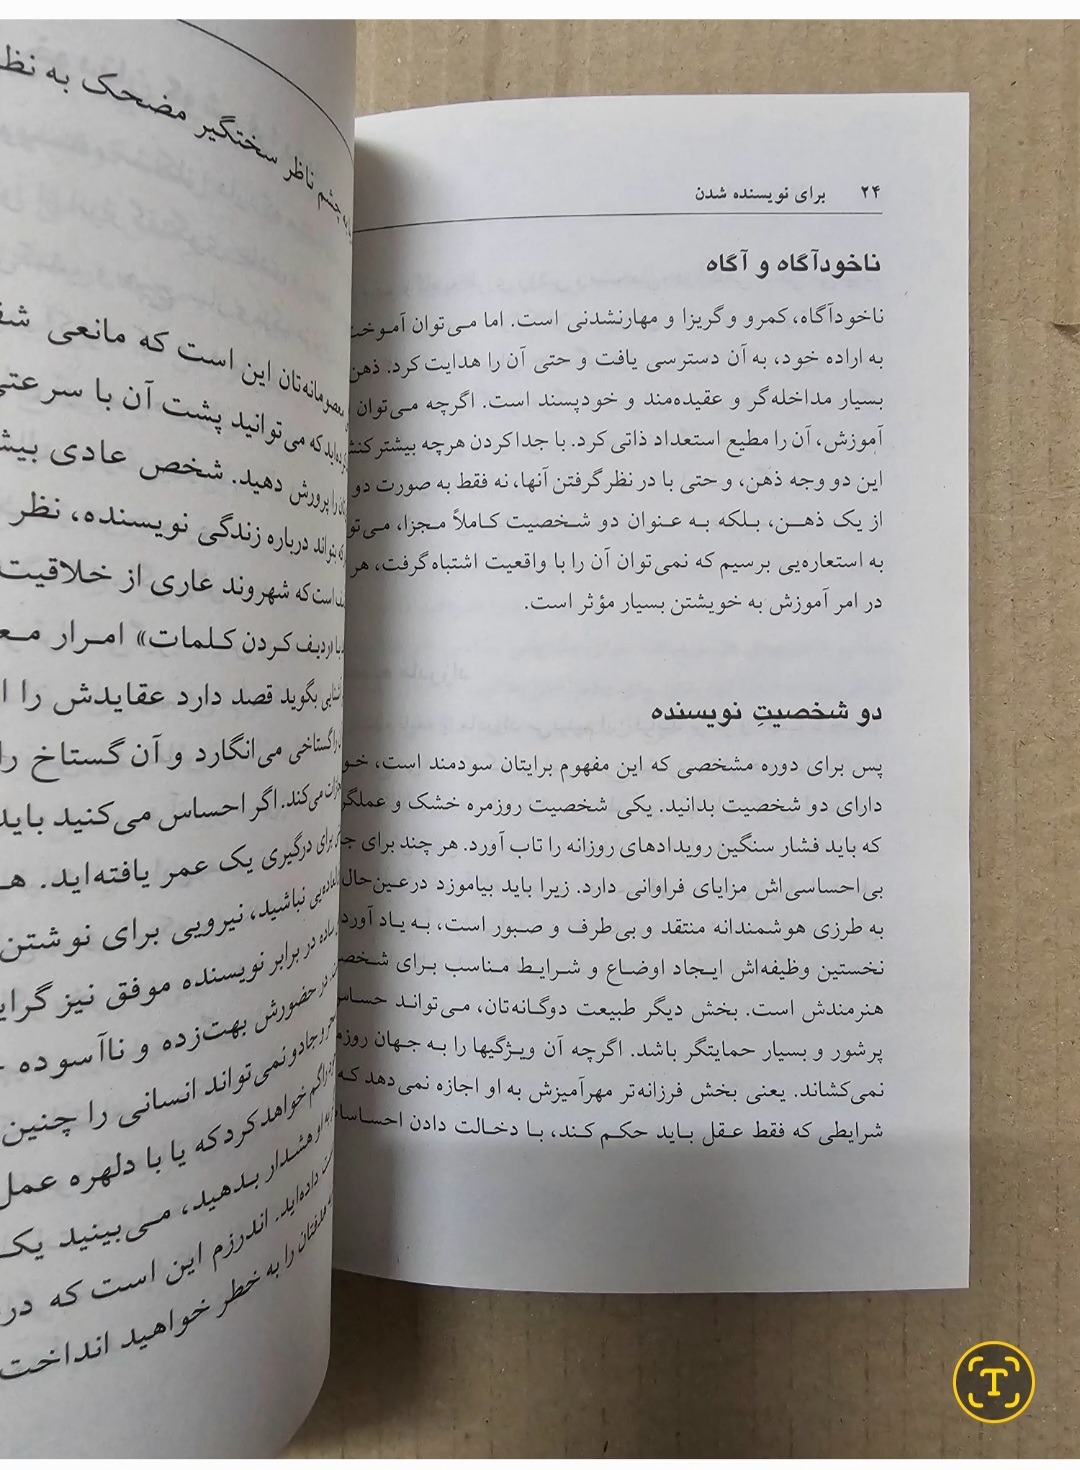 ۲۴ برای نویسنده شدن
ناخودآگاه و آگاه
ناخودآگاه، کمرو و گریزا و مهارنشدنی است. اما می‌توان آموخت
به اراده خود، به آن دسترسی یافت و حتی آن را هدایت کرد. ذهن
بسیار مداخله‌گر و عقیده‌مند و خودپسند است. اگرچه می‌توان
آموزش، آن را مطیع استعداد ذاتی کرد. با جداکردن هرچه بیشتر
این دو وجه ذهن، و حتی با در نظر گرفتن آنها، نه فقط به صورت دو
از یک ذهن، بلکه به عنوان دو شخصیت کاملاً مجزا،
به استعاره‌یی برسیم که نمی‌توان آن را با واقعیت اشتباه گرفت،
در امر آموزش به خویشتن بسیار مؤثر است.
دو شخصیتِ نویسنده
پس برای دوره مشخصی که این مفهوم برایتان سودمند است،
دارای دو شخصیت بدانید. یکی شخصیت روزمره خشک و
که باید فشار سنگین رویدادهای روزانه را تاب آورد. هر چند برای
بی‌احساسی‌اش مزایای فراوانی دارد. زیرا باید بیاموزد درعین‌حال
به طرزی هوشمندانه منتقد و بی‌طرف و صبور است، به یاد آورد
نخستین وظیفه‌اش ایجاد اوضاع و شرایط مناسب برای
هنرمندش است. بخش دیگر طبیعت دوگانه‌تان، می‌تواند حساس
پرشور و بسیار حمایتگر باشد. اگرچه آن ویژگیها را به جهان
نمی‌کشاند. یعنی بخش فرزانه‌تر مهرآمیزش به او اجازه نمی‌دهد که
شرایطی که فقط عقل باید حکم کند، با دخالت دادن
چشم ناظر سختگیر مضحک به
معصومانه‌تان این است که مانعی
که می‌توانید پشت آن با سرعتی
را پرورش دهید. شخص عادی
بتواند درباره زندگی نویسنده، نظر
است که شهروند عاری از خلاقیت
با «ردیف کردن کلمات» امرار
بگوید قصد دارد عقایدش را
گستاخی می‌انگارد و آن گستاخ را
می‌کند. اگر احساس می‌کنید باید
برای درگیری یک عمر یافته‌اید.
نباشید، نیرویی برای نوشتن
ساده در برابر نویسنده موفق نیز
در حضورش بهت‌زده و ناآسوده
و جادو نمی‌تواند انسانی را چنین
گم خواهد کرد که یا با دلهره عمل
او هشدار بدهید، می‌بینید یک
داده‌اید. اندرزم این است که در
را به خطر خواهید انداخت